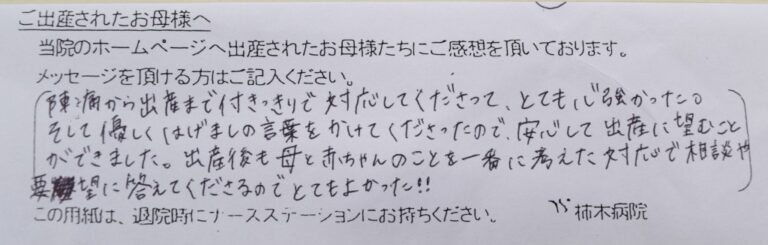 ご出産されたお母様へ
当院のホームページへ出産されたお母様たちにご感想を頂いております。
メッセージを頂ける方はご記入ください。
陣痛から出産まで付きっきりで対応してくださって、とても心強かった。
そして優しくはげましの言葉をかけてくださったので、安心して出産に望むこと
ができました。出産後も母と赤ちゃんのことを一番に考えた対応で相談や
要望に答えてくださるのでとてもよかった!!
この用紙は、退院時にナースステーションにお持ちください。 柿木病院